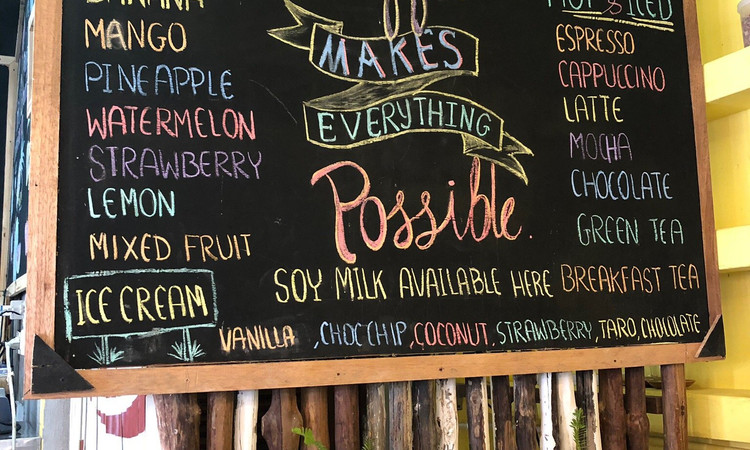 BANANA
MANGO
PINEAPPLE
WATERMELON
STRAWBERRY
LEMON
MIXED FRUIT
MAKES
EVERYTHING
Possible.
HOT & ICED
ESPRESSO
CAPPUCCINO
LATTE
MOCHA
CHOCOLATE
GREEN TEA
BREAKFAST TEA
SOY MILK AVAILABLE HERE
ICE CREAM
VANILLA ,CHOCCHIP,COCONUT,STRAWBERRY,TARO,CHOLOLATE